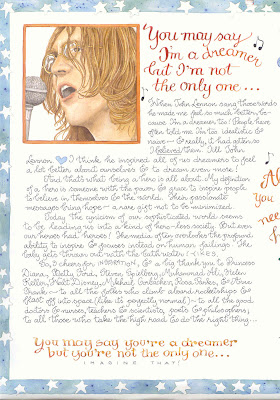 You may say
I'm a dreamer
but I'm not
the only one...
When John Lennon sang those words
he made me feel so much better, be-
cause I'm a dreamer, too. People have
often told me I'm too idealistic &
naive — & really, it had gotten so
I believed them. 'Til John
Lennon. I think he inspired all of us dreamers to feel
a lot better about ourselves & to dream even more.
And that's what being a hero is all about. My definition
of a hero is someone with the power & grace to inspire people
to believe in themselves & the world. Their passionate
messages bring hope — a rare gift not to be minimized.
Today the cynicism of our sophisticated world seems
to be leading us into a kind of hero-less society. But even
our heroes had "heroes." The media often overlooks the profound
ability to inspire & focuses instead on human failings. The
baby gets thrown out with the bath water! YIKES.
So, 3 cheers for HEROISM, & a big thank you to Princess
Diana, Betty Ford, Steven Spielberg, Muhammad Ali, Helen
Keller, Walt Disney, Mikhail Gorbachev, Rosa Parks, & Anne
Frank — to all the folks who climb aboard rocketships &
blast off into space (like it's perfectly normal) — to all the good
doctors & nurses, teachers & scientists, poets & philosophers;
to all those who take the high road & do the right thing...
You may say you're a dreamer
but you're not the only one...
IMAGINE THAT!
Al
you
nee